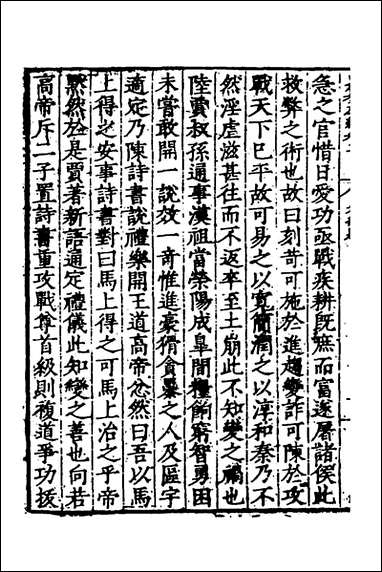 急之官惜日愛功亟戰疾耕既庶而富遂屠諸侯此
救弊之術也故曰刻苛可施於進趨變詐可陳於攻
戰天下已平故可易之以寬簡潤之以淳和秦乃不
然淫虐滋甚往而不返卒至土崩此不知變之禍也
陸賈叔孫通事漢祖當榮陽成皐間糧餉窮智勇困
未嘗敢開一說效一奇惟進豪猾貪暴之人及區字
適定乃陳詩書說禮樂開王道高帝忿然曰吾以馬
上得之安事詩書對曰馬上得之可馬上治之乎帝
黙然於是賈著新語通定禮儀此知變之善也向若
高帝斥二子置詩書重攻戰尊首級則複道爭功拔